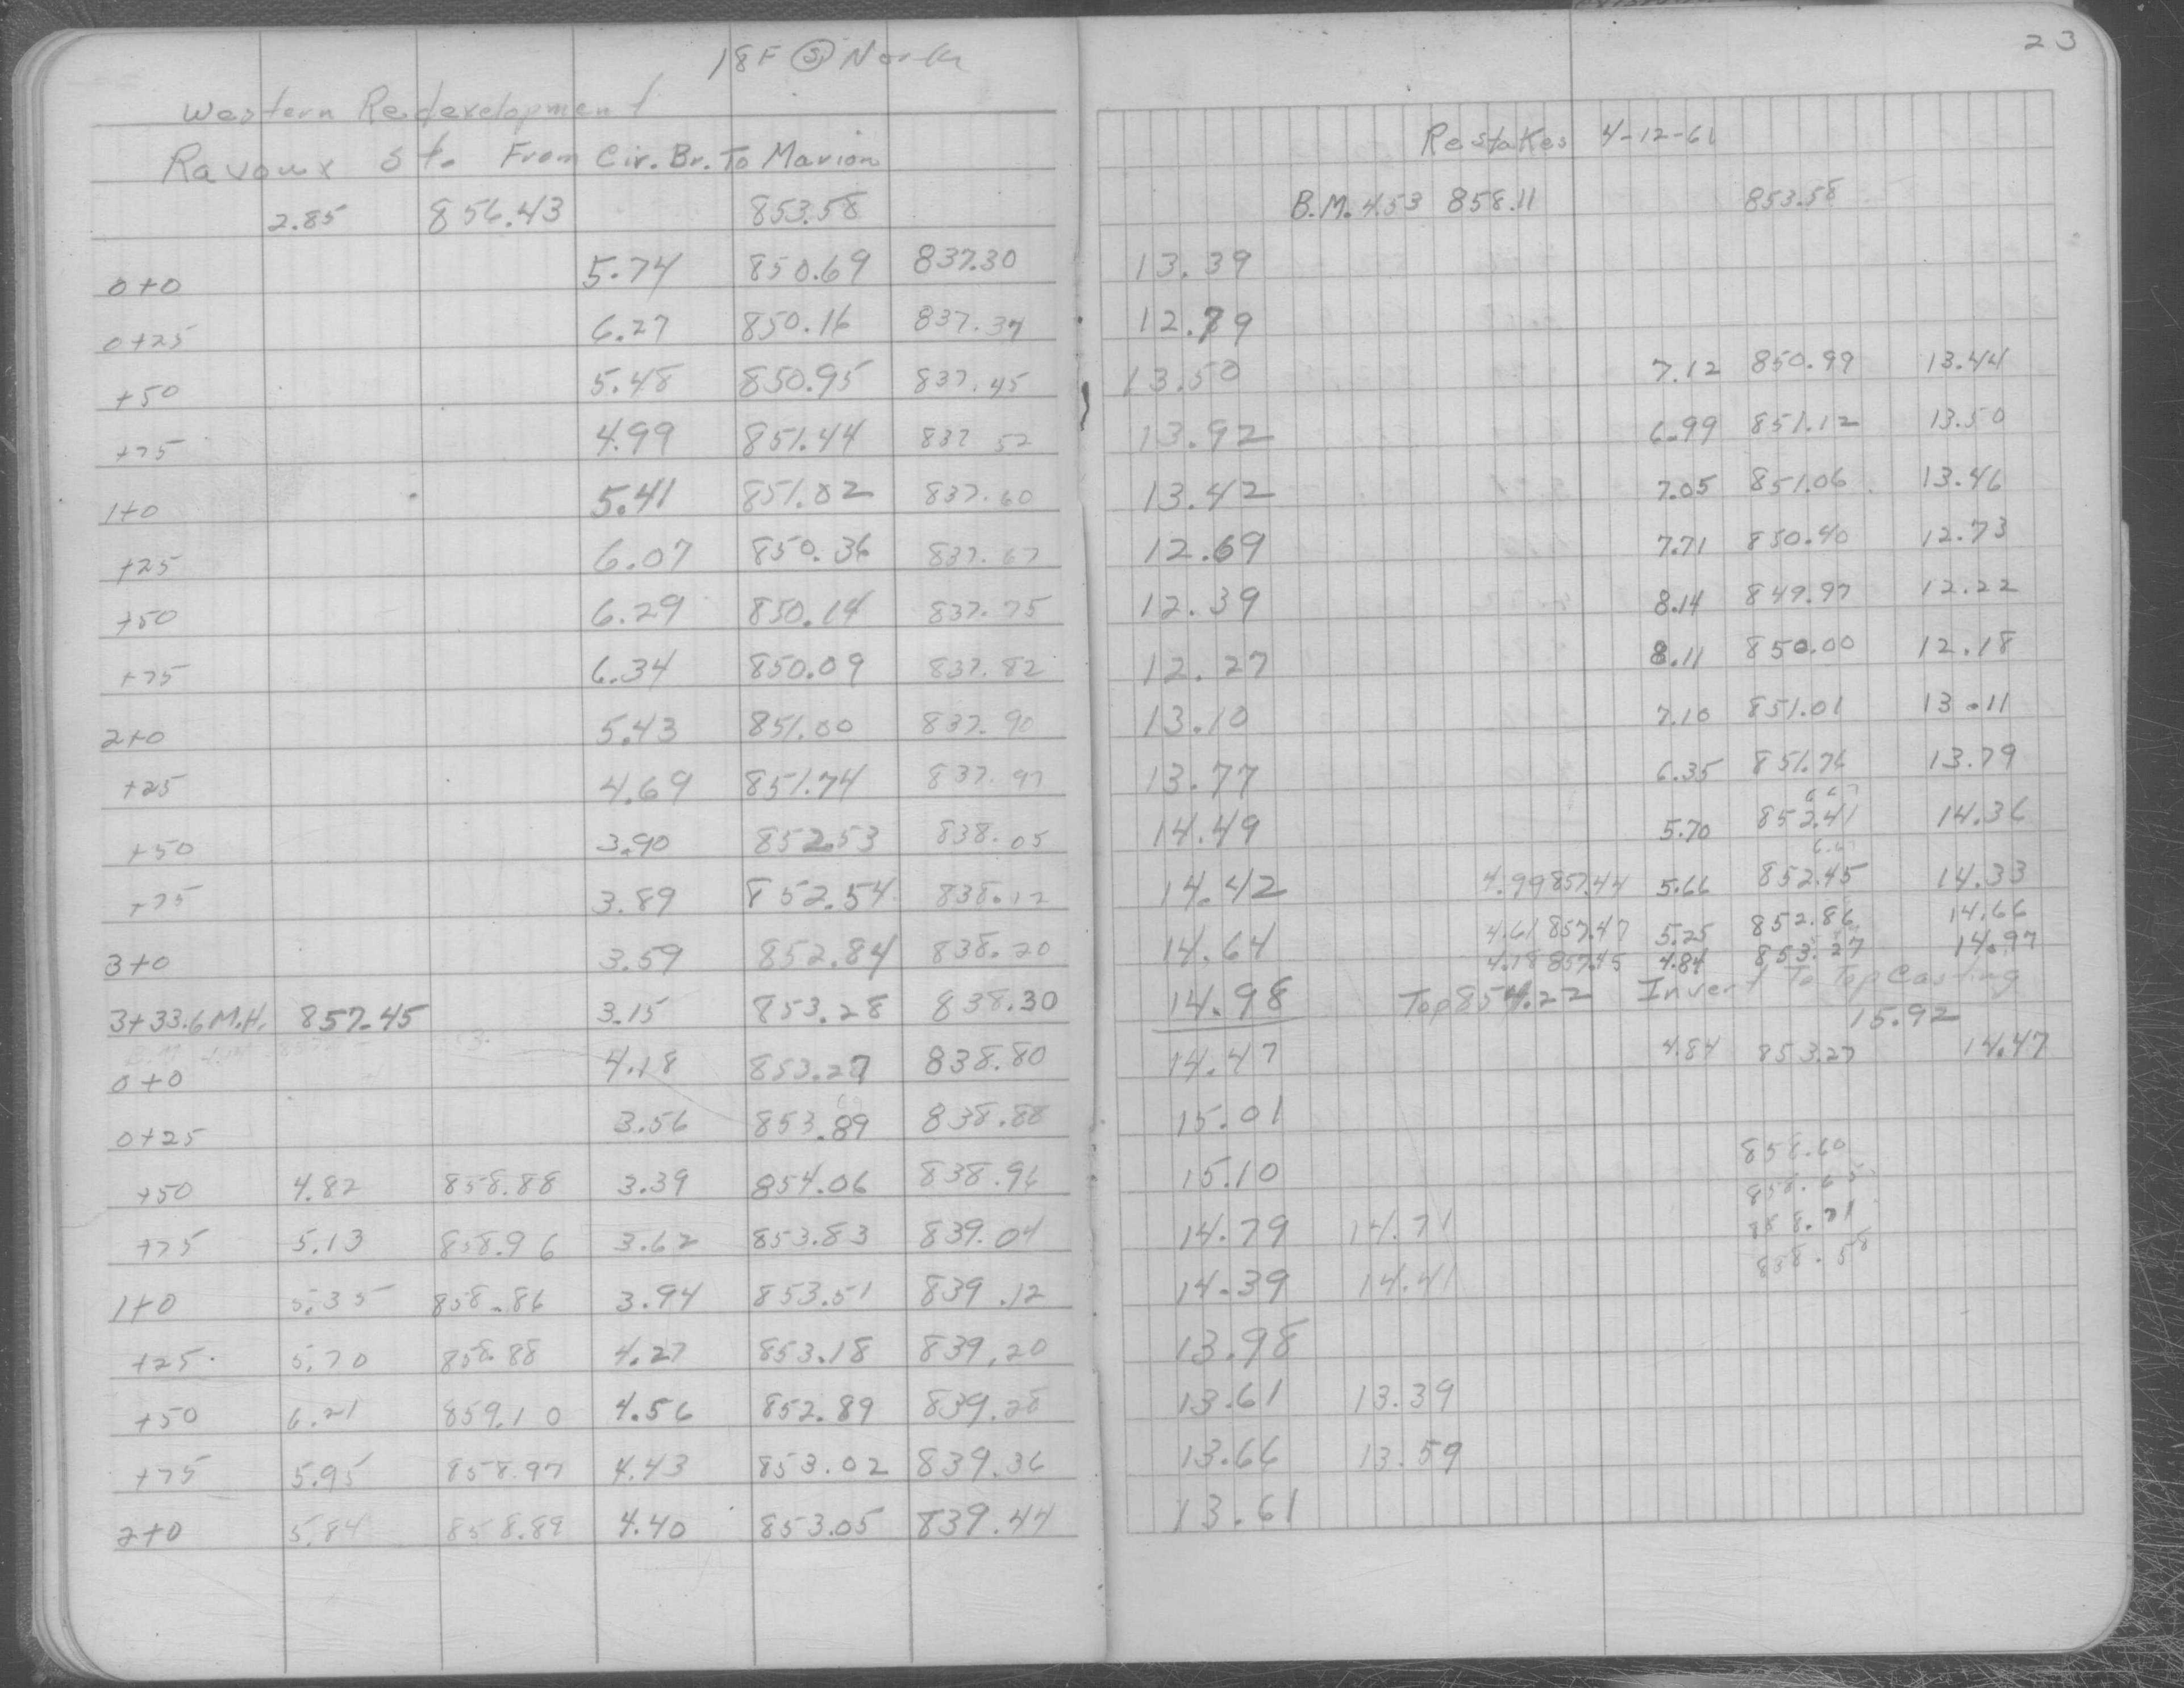 18F Ⓢ North
23
Western Redevelopment
Ravoux St. From Cir. Br. To Marion
Restakes 4-12-61
2.85 856.43 853.58 B.M. 4.53 858.11 853.58
0+0 5.74 850.69 837.30 13.39
0+25 6.27 850.16 837.37 12.79
+50 5.48 850.95 837.45 13.50 7.12 850.99 13.44
+75 4.99 851.44 837 52 13.92 6.99 851.12 13.50
1+0 5.41 851.02 837.60 13.42 7.05 851.06 13.46
+25 6.07 850.36 837.67 12.69 7.71 850.40 12.73
+50 6.29 850.14 837.75 12.39 8.14 849.97 12.22
+75 6.34 850.09 837.82 12.27 8.11 850.00 12.18
2+0 5.43 851.00 837.90 13.10 7.10 851.01 13.11
+25 4.69 851.74 837.97 13.77 6.35 851.76 13.79
+50 3.90 852.53 838.05 14.49 5.70 852.41 14.36
+75 3.89 852.54 838.12 14.42 4.99 857.44 5.66 852.45 14.33
3+0 3.59 852.84 838.20 14.64 4.61 857.47 5.25 852.86 14.66
4.18 857.45 4.84 853.27 14.97
3+33.6 M.H. 857.45 3.15 853.28 838.30 14.98 Top 854.22 Invert To Top Casting
15.92
0+0 4.18 853.27 838.80 14.47 4.84 853.27 14.47
0+25 3.56 853.89 838.88 15.01
+50 4.82 858.88 3.39 854.06 838.96 15.10 858.60
858.65
+75 5.13 858.96 3.62 853.83 839.04 14.79 14.71 858.71
858.58
1+0 5.35 858.86 3.94 853.51 839.12 14.39 14.41
+25 5.70 858.88 4.27 853.18 839.20 13.98
+50 6.21 859.10 4.56 852.89 839.28 13.61 13.39
+75 5.95 858.97 4.43 853.02 839.36 13.66 13.59
2+0 5.84 858.89 4.40 853.05 839.44 13.61